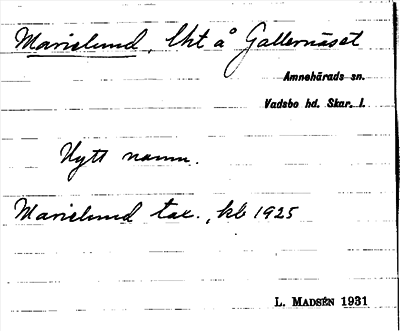 Marielund, lht å Gallernäset
Amnehärads sn.
Vadsbo hd. Skar. l.
Nytt namn.
Marielund tax., kb 1925
L. MADSÉN 1931